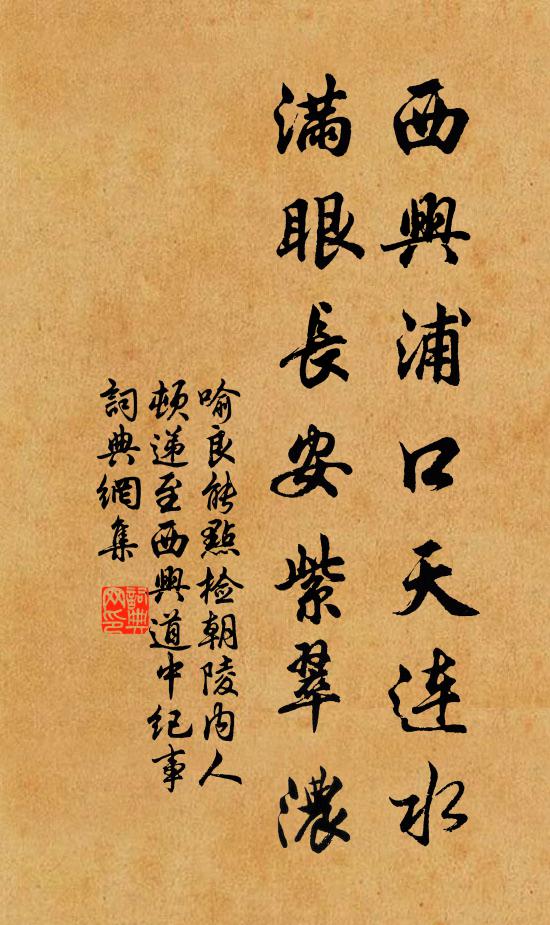 西興浦口天連水
滿眼長安紫翠濃
喻良能點檢朝陵內人
頓遞至西興道中紀事
詞典網集
詞典
网印